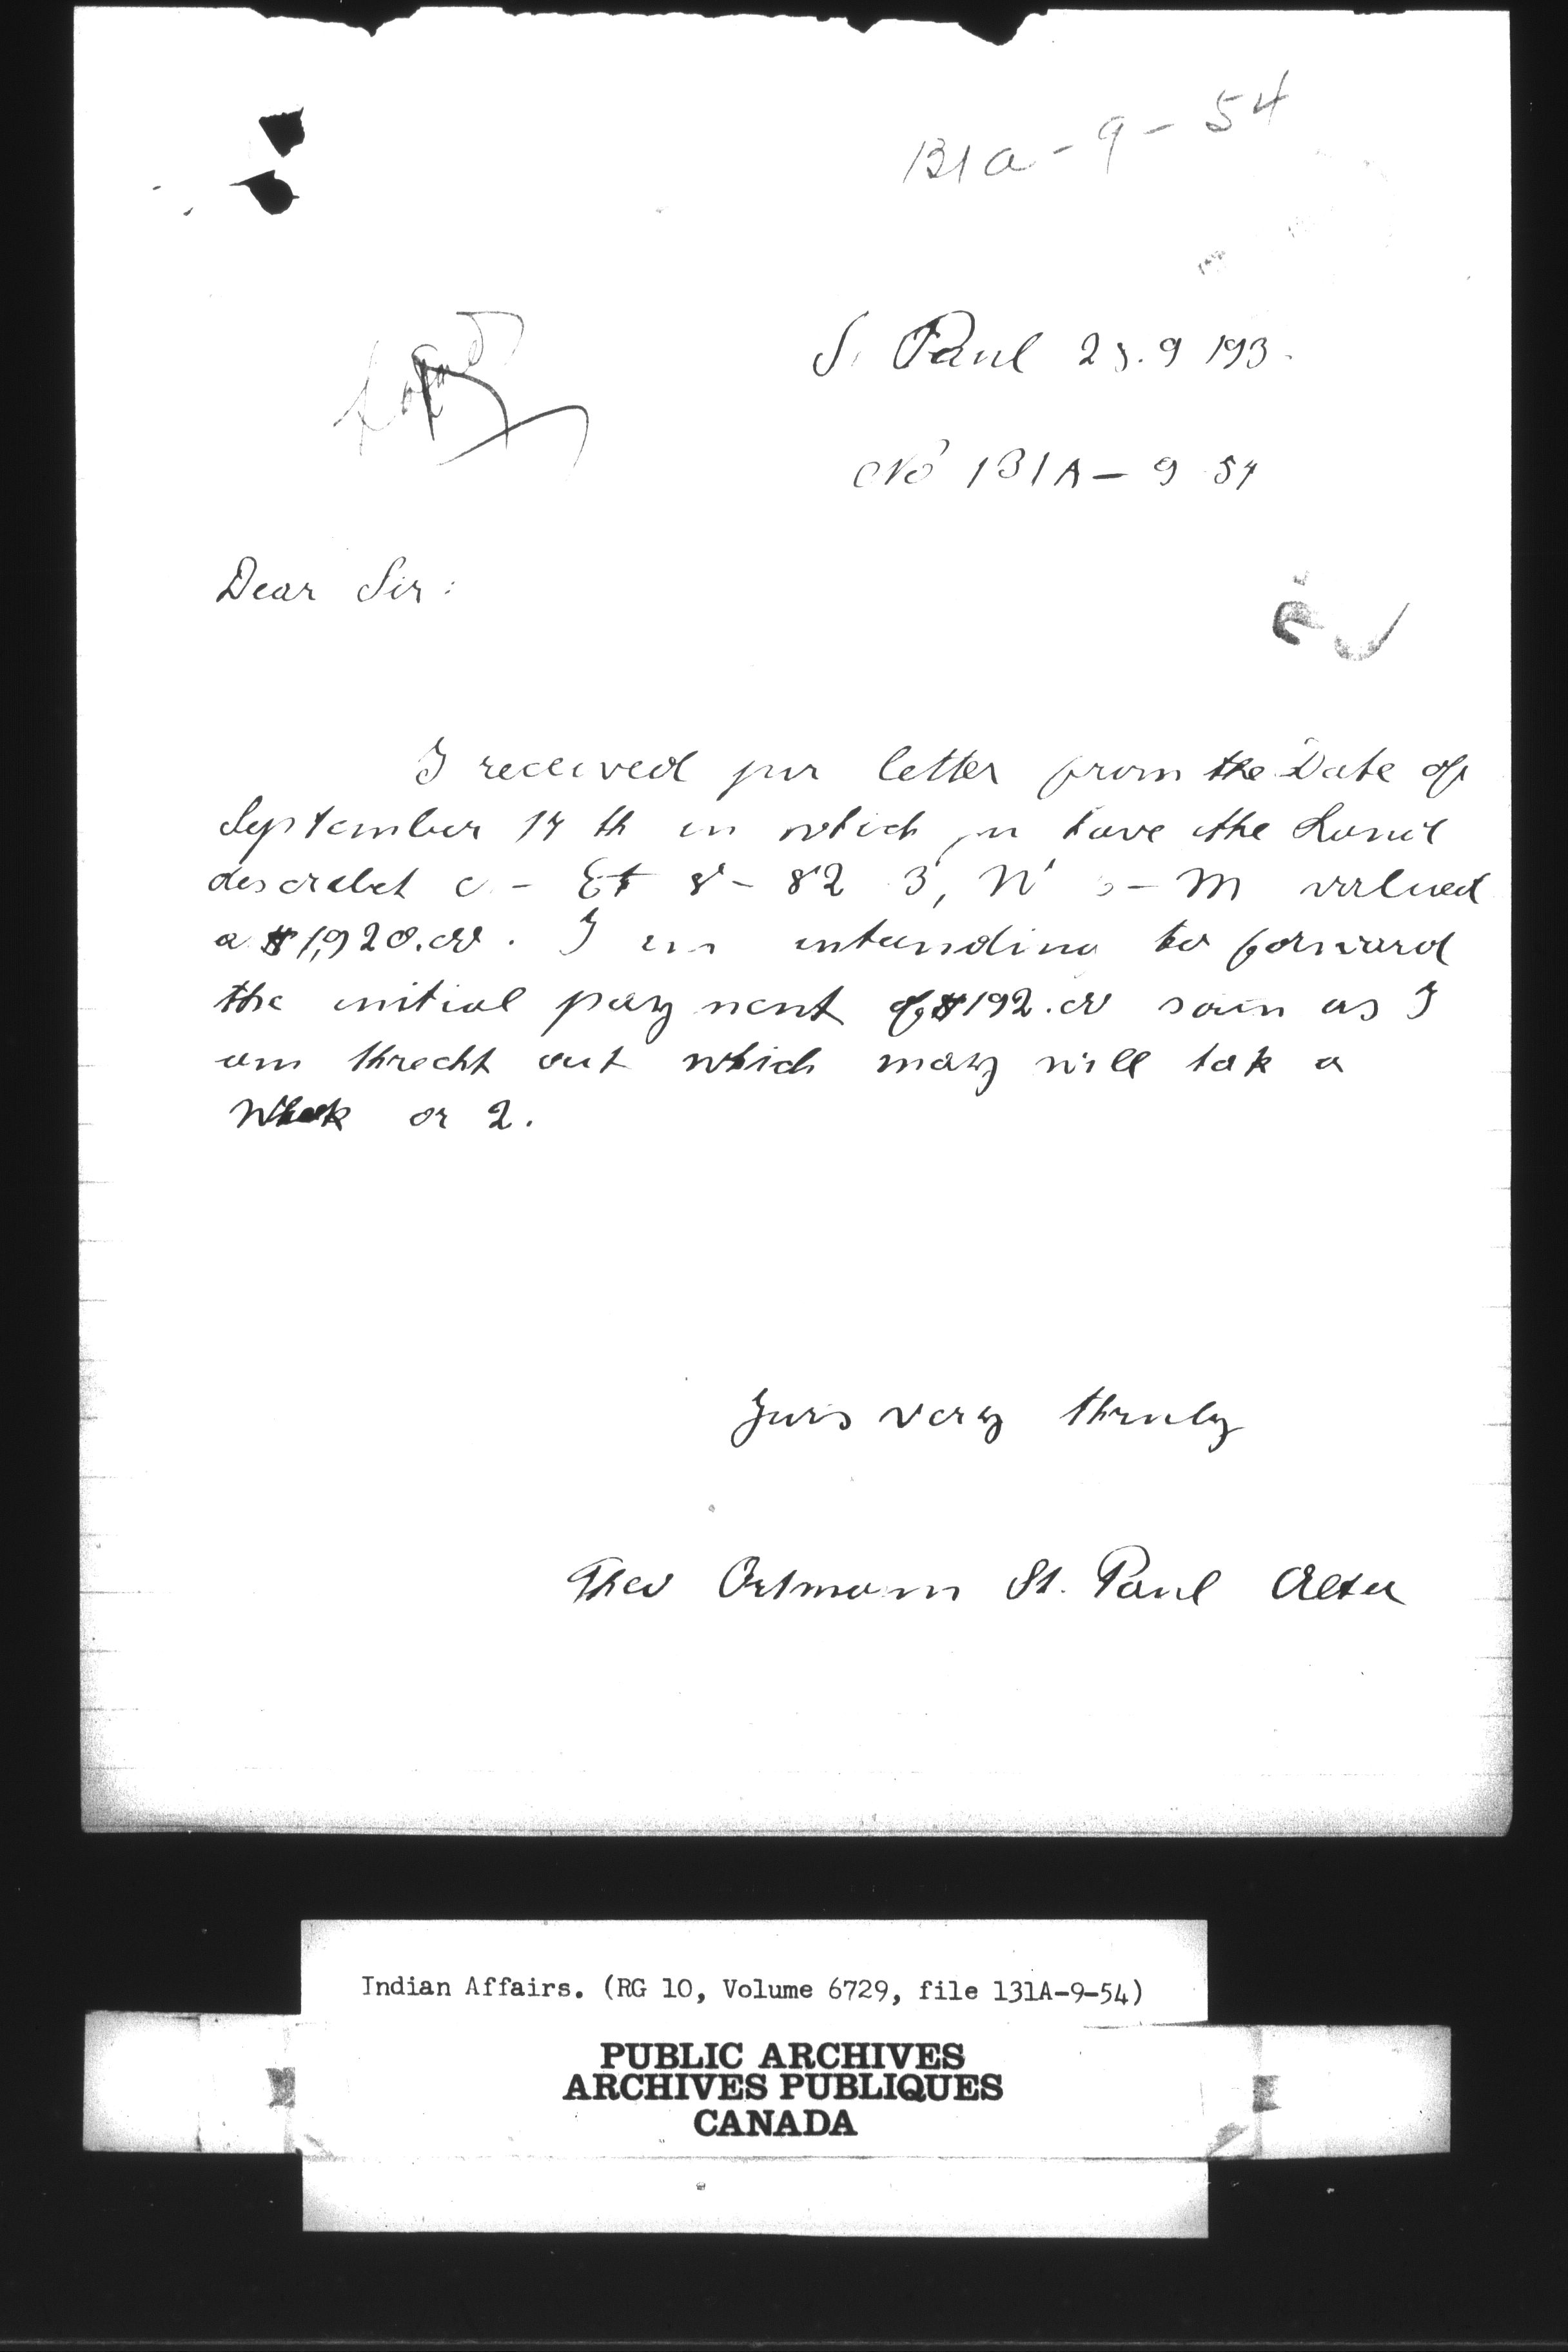 131a-9-54
S. Paul 23.9 193
No 131A-9 54
Dear Sir:
I received jur letter from the Date of
September 14 th in which ju have the Land
descrabet - E 8-82 3, W - M valued
a $1,920.00. I intending to forward
the initial payment of $192.00 soun as I
am threcht out which may will tak a
Week or 2.
Jurs very thruly
Theo Ortmann St. Paul Alta
Indian Affairs. (RG 10, Volume 6729, file 131A-9-54)
PUBLIC ARCHIVES
ARCHIVES PUBLIQUES
CANADA